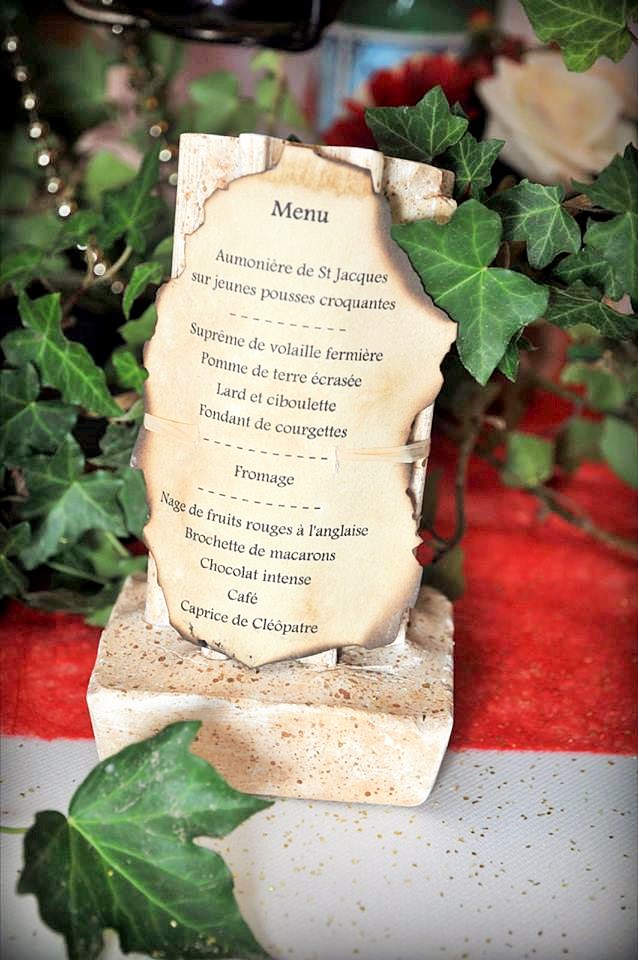 Menu
Aumonière de St Jacques
sur jeunes pousses croquantes
Suprême de volaille fermière
Pomme de terre écrasée
Lard et ciboulette
Fondant de courgettes
Fromage
Nage de fruits rouges à l'anglaise
Brochette de macarons
Chocolat intense
Café
Caprice de Cléôpatre